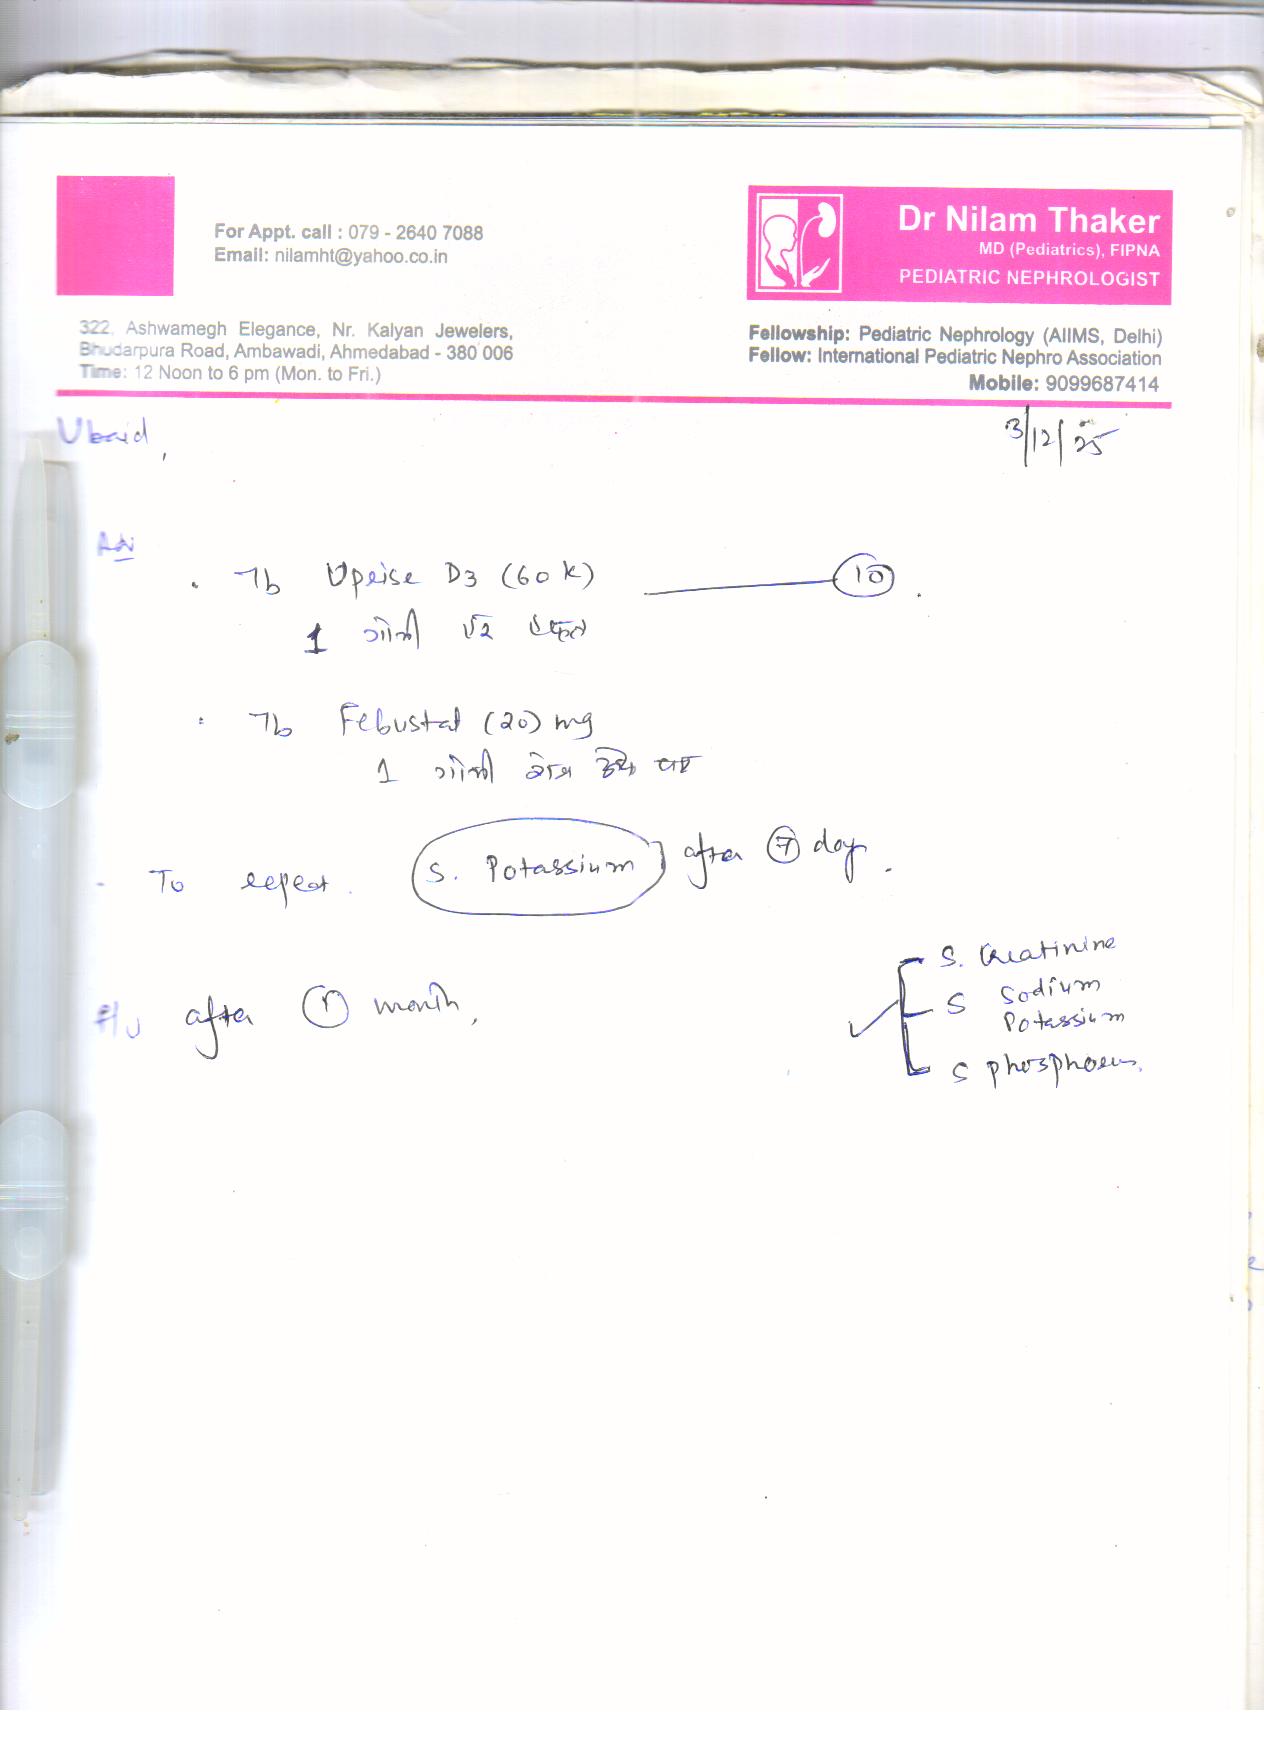 For Appt. call : 079 - 2640 7088
Email: nilamht@yahoo.co.in
Dr Nilam Thaker
MD (Pediatrics), FIPNA
PEDIATRIC NEPHROLOGIST
322, Ashwamegh Elegance, Nr. Kalyan Jewelers,
Bhudarpura Road, Ambawadi, Ahmedabad - 380 006
Time: 12 Noon to 6 pm (Mon. to Fri.)
Fellowship: Pediatric Nephrology (AIIMS, Delhi)
Fellow: International Pediatric Nephro Association
Mobile: 9099687414
Ubaid,
3/12/25
Adv
Tb Upeise D3 (60 K) 10
1 ગોળી દર
Tb Febustat (20) mg
1 ગોળી રોજ
To repeat S. Potassium after 7 day.
F/U after 1 month,
S. Creatinine
S Sodium
Potassium
S phosphorus.